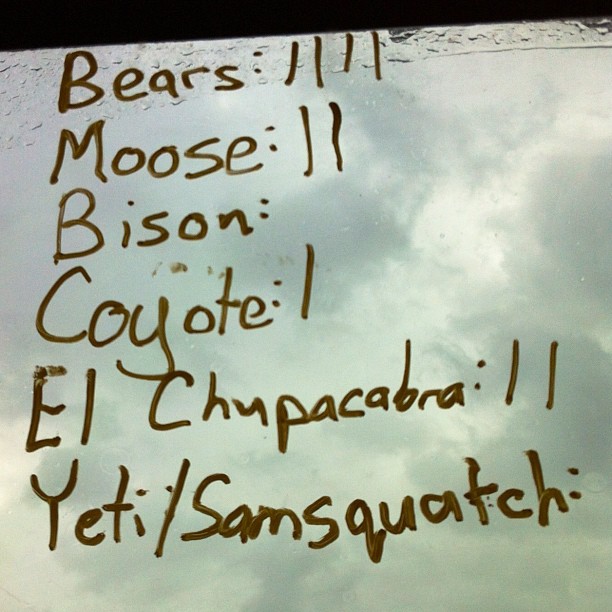 Bears: ||||
Moose: ||
Bison:
Coyote: |
El Chupacabra: ||
Yeti/Samsquatch: